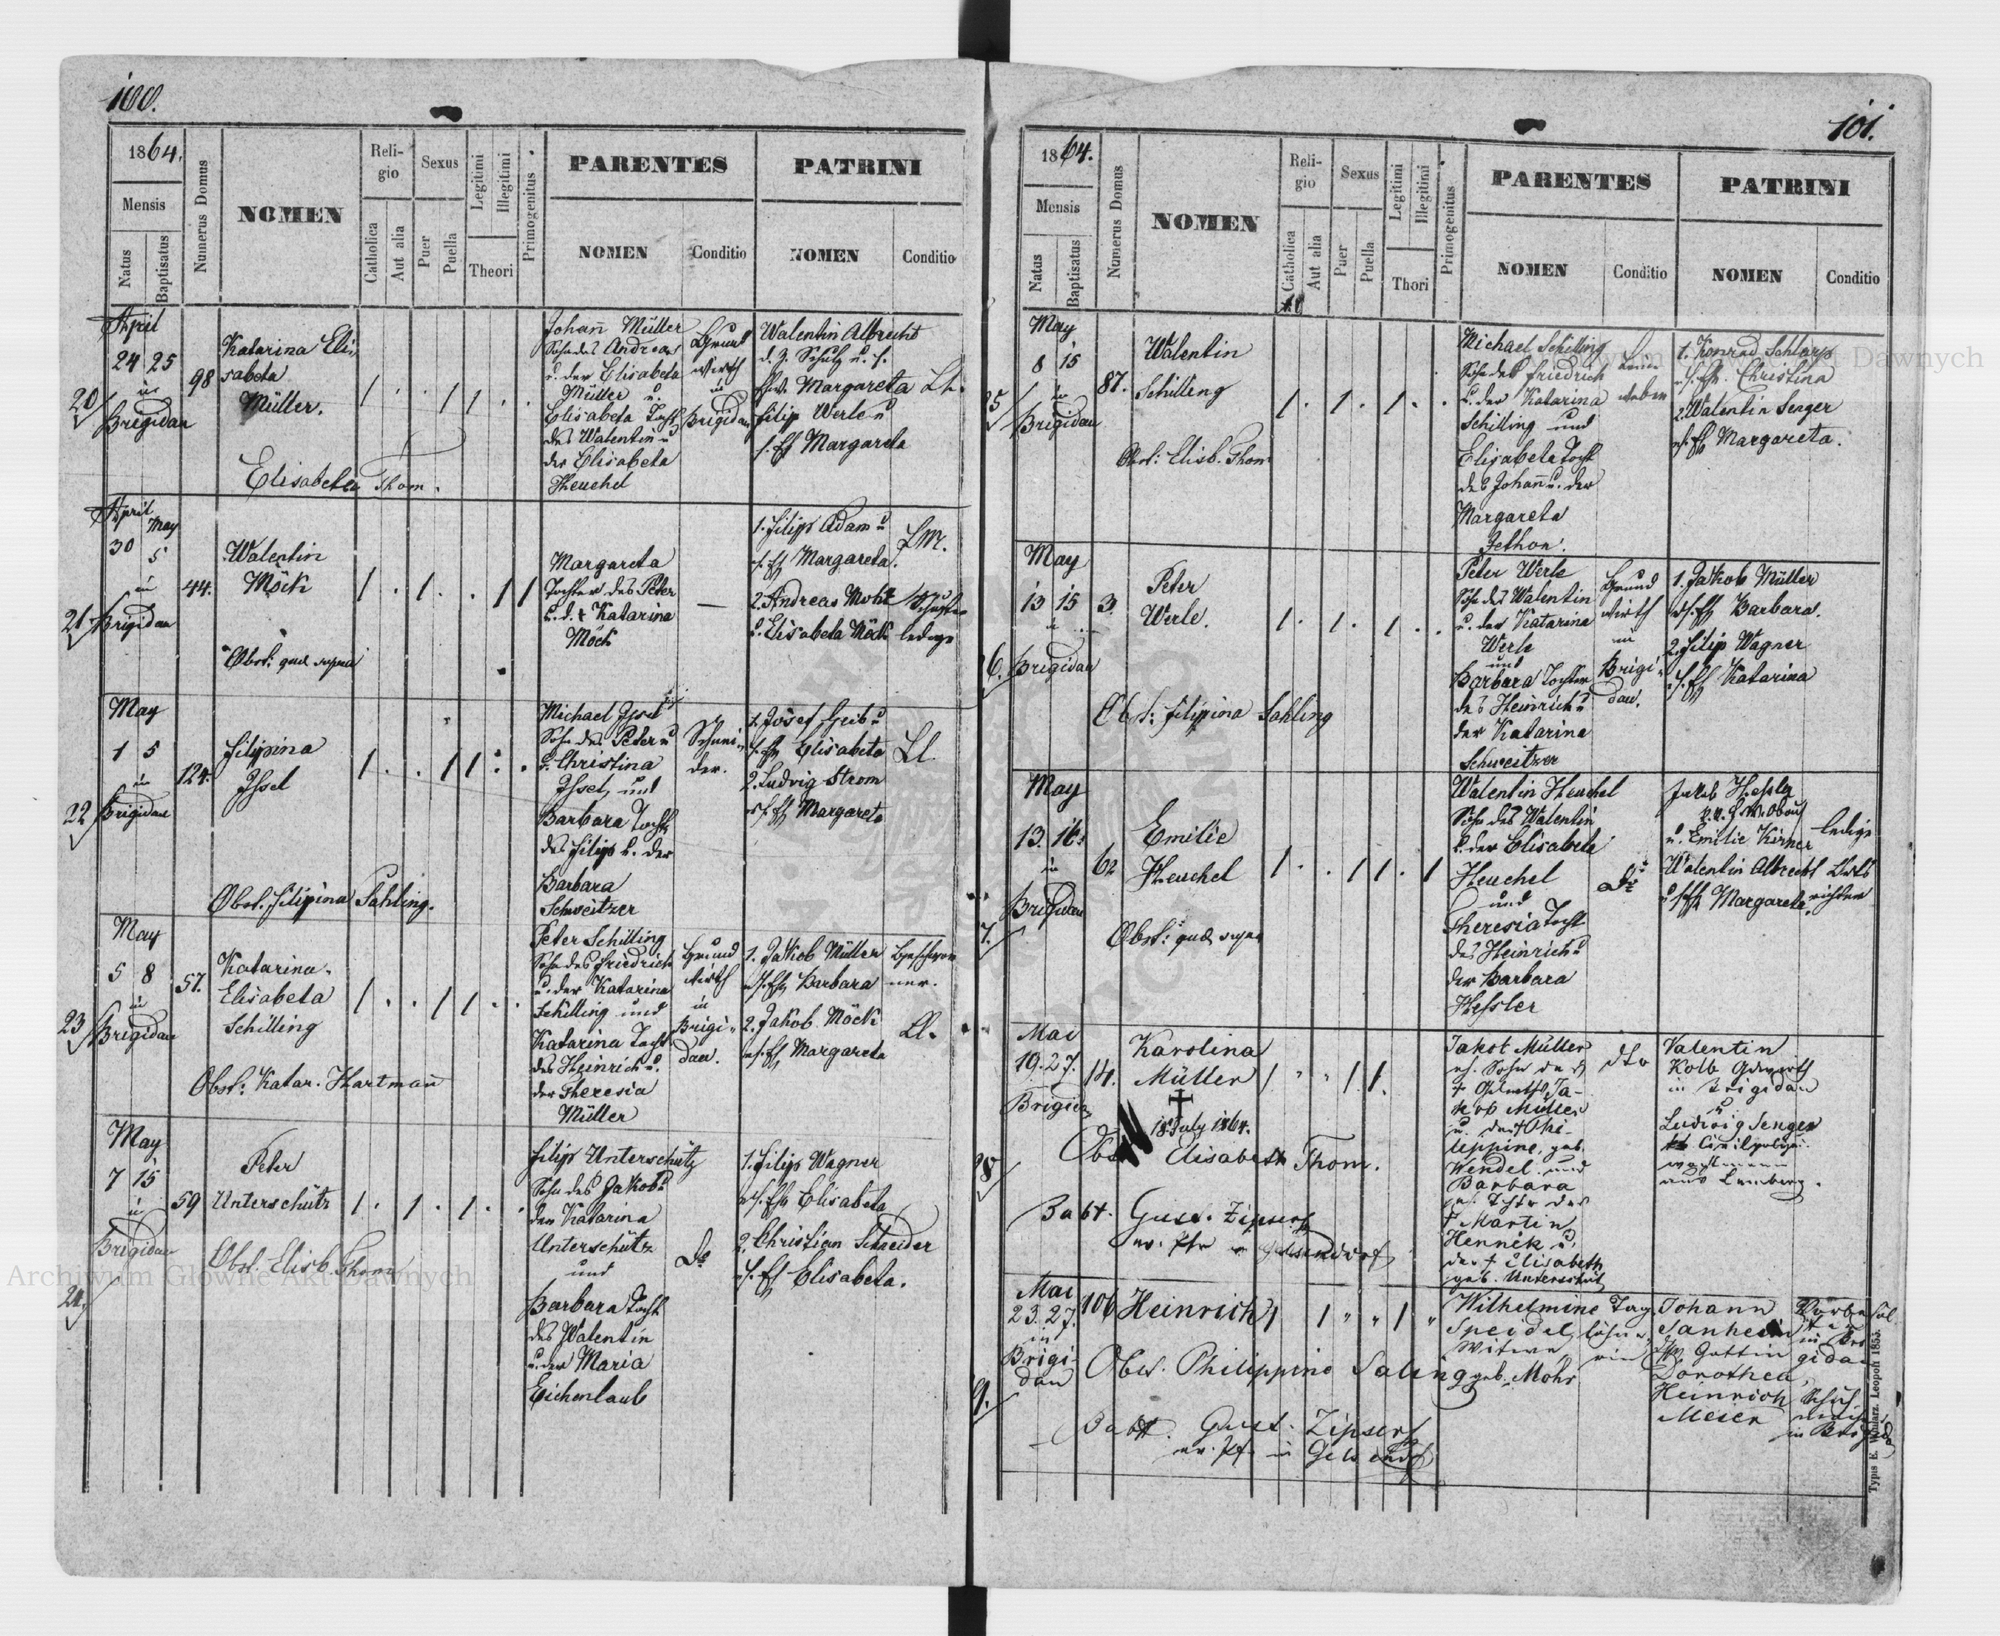 100.
1864.
Mensis
Natus
Baptisatus
Numerus Domus
NOMEN
Religio
Catholica
Aut alia
Sexus
Puer
Puella
Legitimi
Illegitimi
Theori
Primogenitus
PARENTES
NOMEN
Conditio
PATRINI
NOMEN
Conditio
20/
April
24 25
in
Brigidau
98
Katarina Eli-
sabeta
Müller.
Elisabeta Thom.
Johan̄ Müller
Sohn des Andreas
u. der Elisabeta
Müller u.
Elisabeta Tocht
des Walentin u
der Elisabeta
Heuchel
Grund
wirth
in
Brigidau
Walentin Albrecht
Margareta
Filip Werle u
Margareta
21
April
May
30 5
in
Brigidau
44.
Walentin
Möck
Obst: quae supra
Margareta
Tochter des Peter
u. d. + Katarina
Möck
1. Filip Adam u
Margareta.
2. Andreas
Elisabeta Möck
ledige
22
May
1 5
in
Brigidau
124.
Filipina
Issel
Obst. Filipina Sahling.
Michael Issel
Sohn des Peter u
Christina
Issel, und
Barbara Tocht
des Filip u. der
Barbara
Schweitzer
Schnei-
der.
1. Josef
Elisabeta
2. Ludwig Strom
Margareta
23
May
5 8
in
Brigidau
57.
Katarina
Elisabeta
Schilling
Obst: Katar. Hartman̄
Peter Schilling
Sohn des Friedrich
u. der Katarina
Schilling und
Katarina Tocht
des Heinrich u.
der Theresia
Müller
Grund
wirth
in
Brigi-
dau.
1. Jakob Müller
Barbara
2. Jakob Möck
Margareta
Geschwor-
ner.
24.
May
7 15
in
Brigidau
59
Peter
Unterschütz
Obst. Elisb. Thom
Filip Unterschütz
Sohn des Jakob u
der Katarina
Unterschütz
und
Barbara Tocht
des Walentin
u. der Maria
Eichenlaub
1. Filip Wagner
Elisabeta
2. Christian Schneider
Elisabeta.
101.
1864.
Mensis
Natus
Baptisatus
Numerus Domus
NOMEN
Religio
Catholica
Aut alia
Sexus
Puer
Puella
Legitimi
Illegitimi
Thori
Primogenitus
PARENTES
NOMEN
Conditio
PATRINI
NOMEN
Conditio
May
8 15
in
Brigidau
87.
Walentin
Schilling
Obst: Elisb. Thom
Michael Schilling
Sohn des Friedrich
u. der Katarina
Schilling und
Elisabeta Tocht
des Johan̄ u. der
Margareta
Jethon.
Lein-
weber
1. Konrad
Christina
2. Walentin Senger
Margareta.
6.
May
13 15
in
Brigidau
3.
Peter
Werle.
Obst: Filipina Sahling
Peter Werle
Sohn des Walentin
u. der Katarina
Werle
und
Barbara Tochter
des Heinrich u
der Katarina
Schweitzer
Grund
wirth
in
Brigi-
dau.
1. Jakob Müller
Barbara.
2. Filip Wagner
Katarina
7.
May
13. 16.
in
Brigidau
62
Emilie
Heuchel
Obst: quae supra
Walentin Heuchel
Sohn des Walentin
u. der Elisabeta
Heuchel
und
Theresia Tocht
des Heinrich u
der Barbara
Hessler
u. Emilie
ledige
Walentin Albrecht
Margareta
Orts
richter
8
Mai
19. 27.
Brigidau
14.
Karolina
Müller
18. July 1864.
Obst Elisabeth Thom.
Babt. Gust. Zipser
Jakob Müller
u.
Philippine, geb.
Wendel und
Barbara
† Martin
Hennek u.
der † Elisabeth
geb. Unterschütz
dto
Valentin
Kolb
in Brigidau
u
Ludwig Senger
aus Lemberg.
9.
Mai
23. 27.
in
Brigi-
dau
106
Heinrich
Obst. Philippine Saling
Babtt. Gust. Zipser
in Gelsendf
Wilhelmine
Speidel,
Witwe
geb. Mohr
Tag-
löhne-
rin
Johann
Sanheim
Gattin
Dorothea,
Heinrich
Meier
Typis E. Winiarz. Leopoli 1855.
Archiwum Główne Akt Dawnych
Archiwum Główne Akt Dawnych